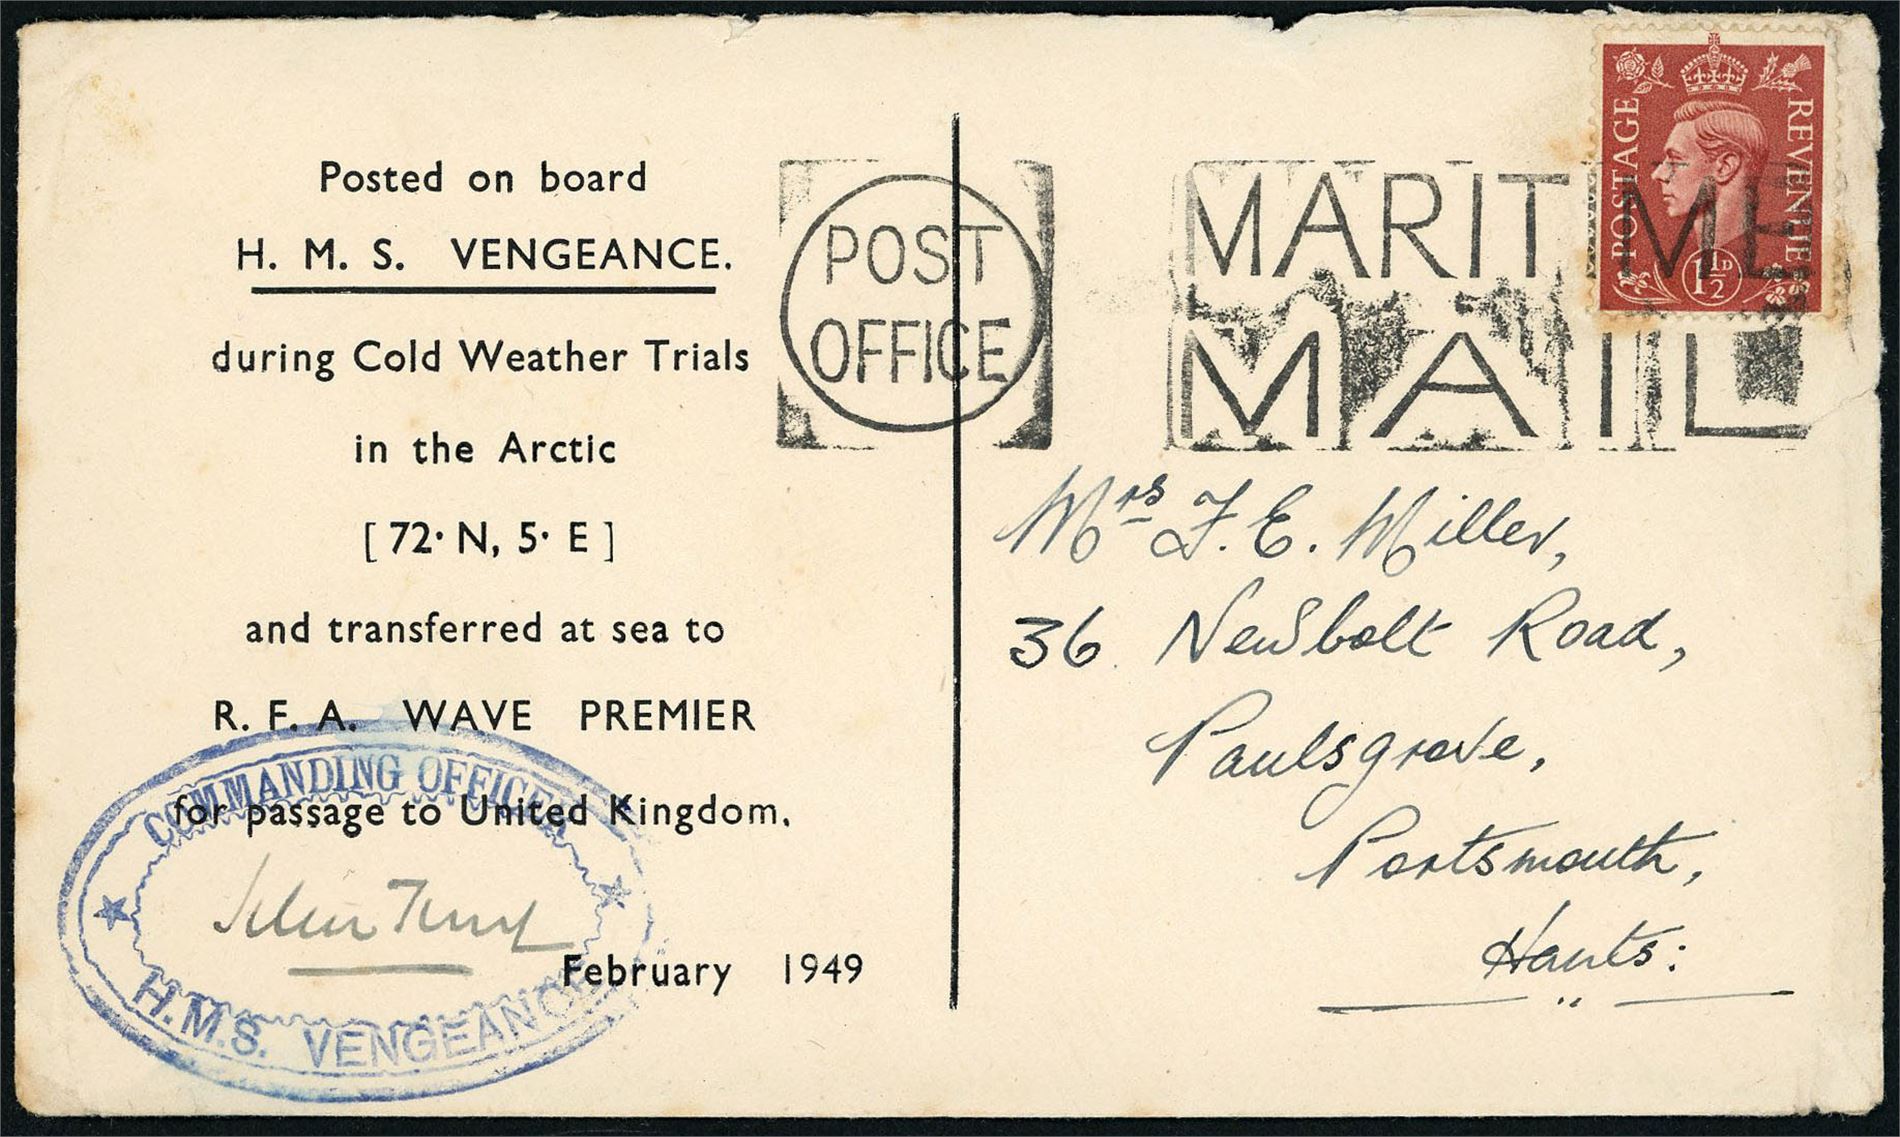 Posted on board
H. M. S. VENGEANCE.
during Cold Weather Trials
in the Arctic
[ 72· N, 5· E ]
and transferred at sea to
R. F. A. WAVE PREMIER
for passage to United Kingdom.
February 1949
COMMANDING OFFICER
H.M.S. VENGEANCE
POST
OFFICE
MARITIME
MAIL
POSTAGE
REVENUE
1½D
Mrs F. E. Miller,
36 Newbolt Road,
Paulsgrove,
Portsmouth,
Hants: